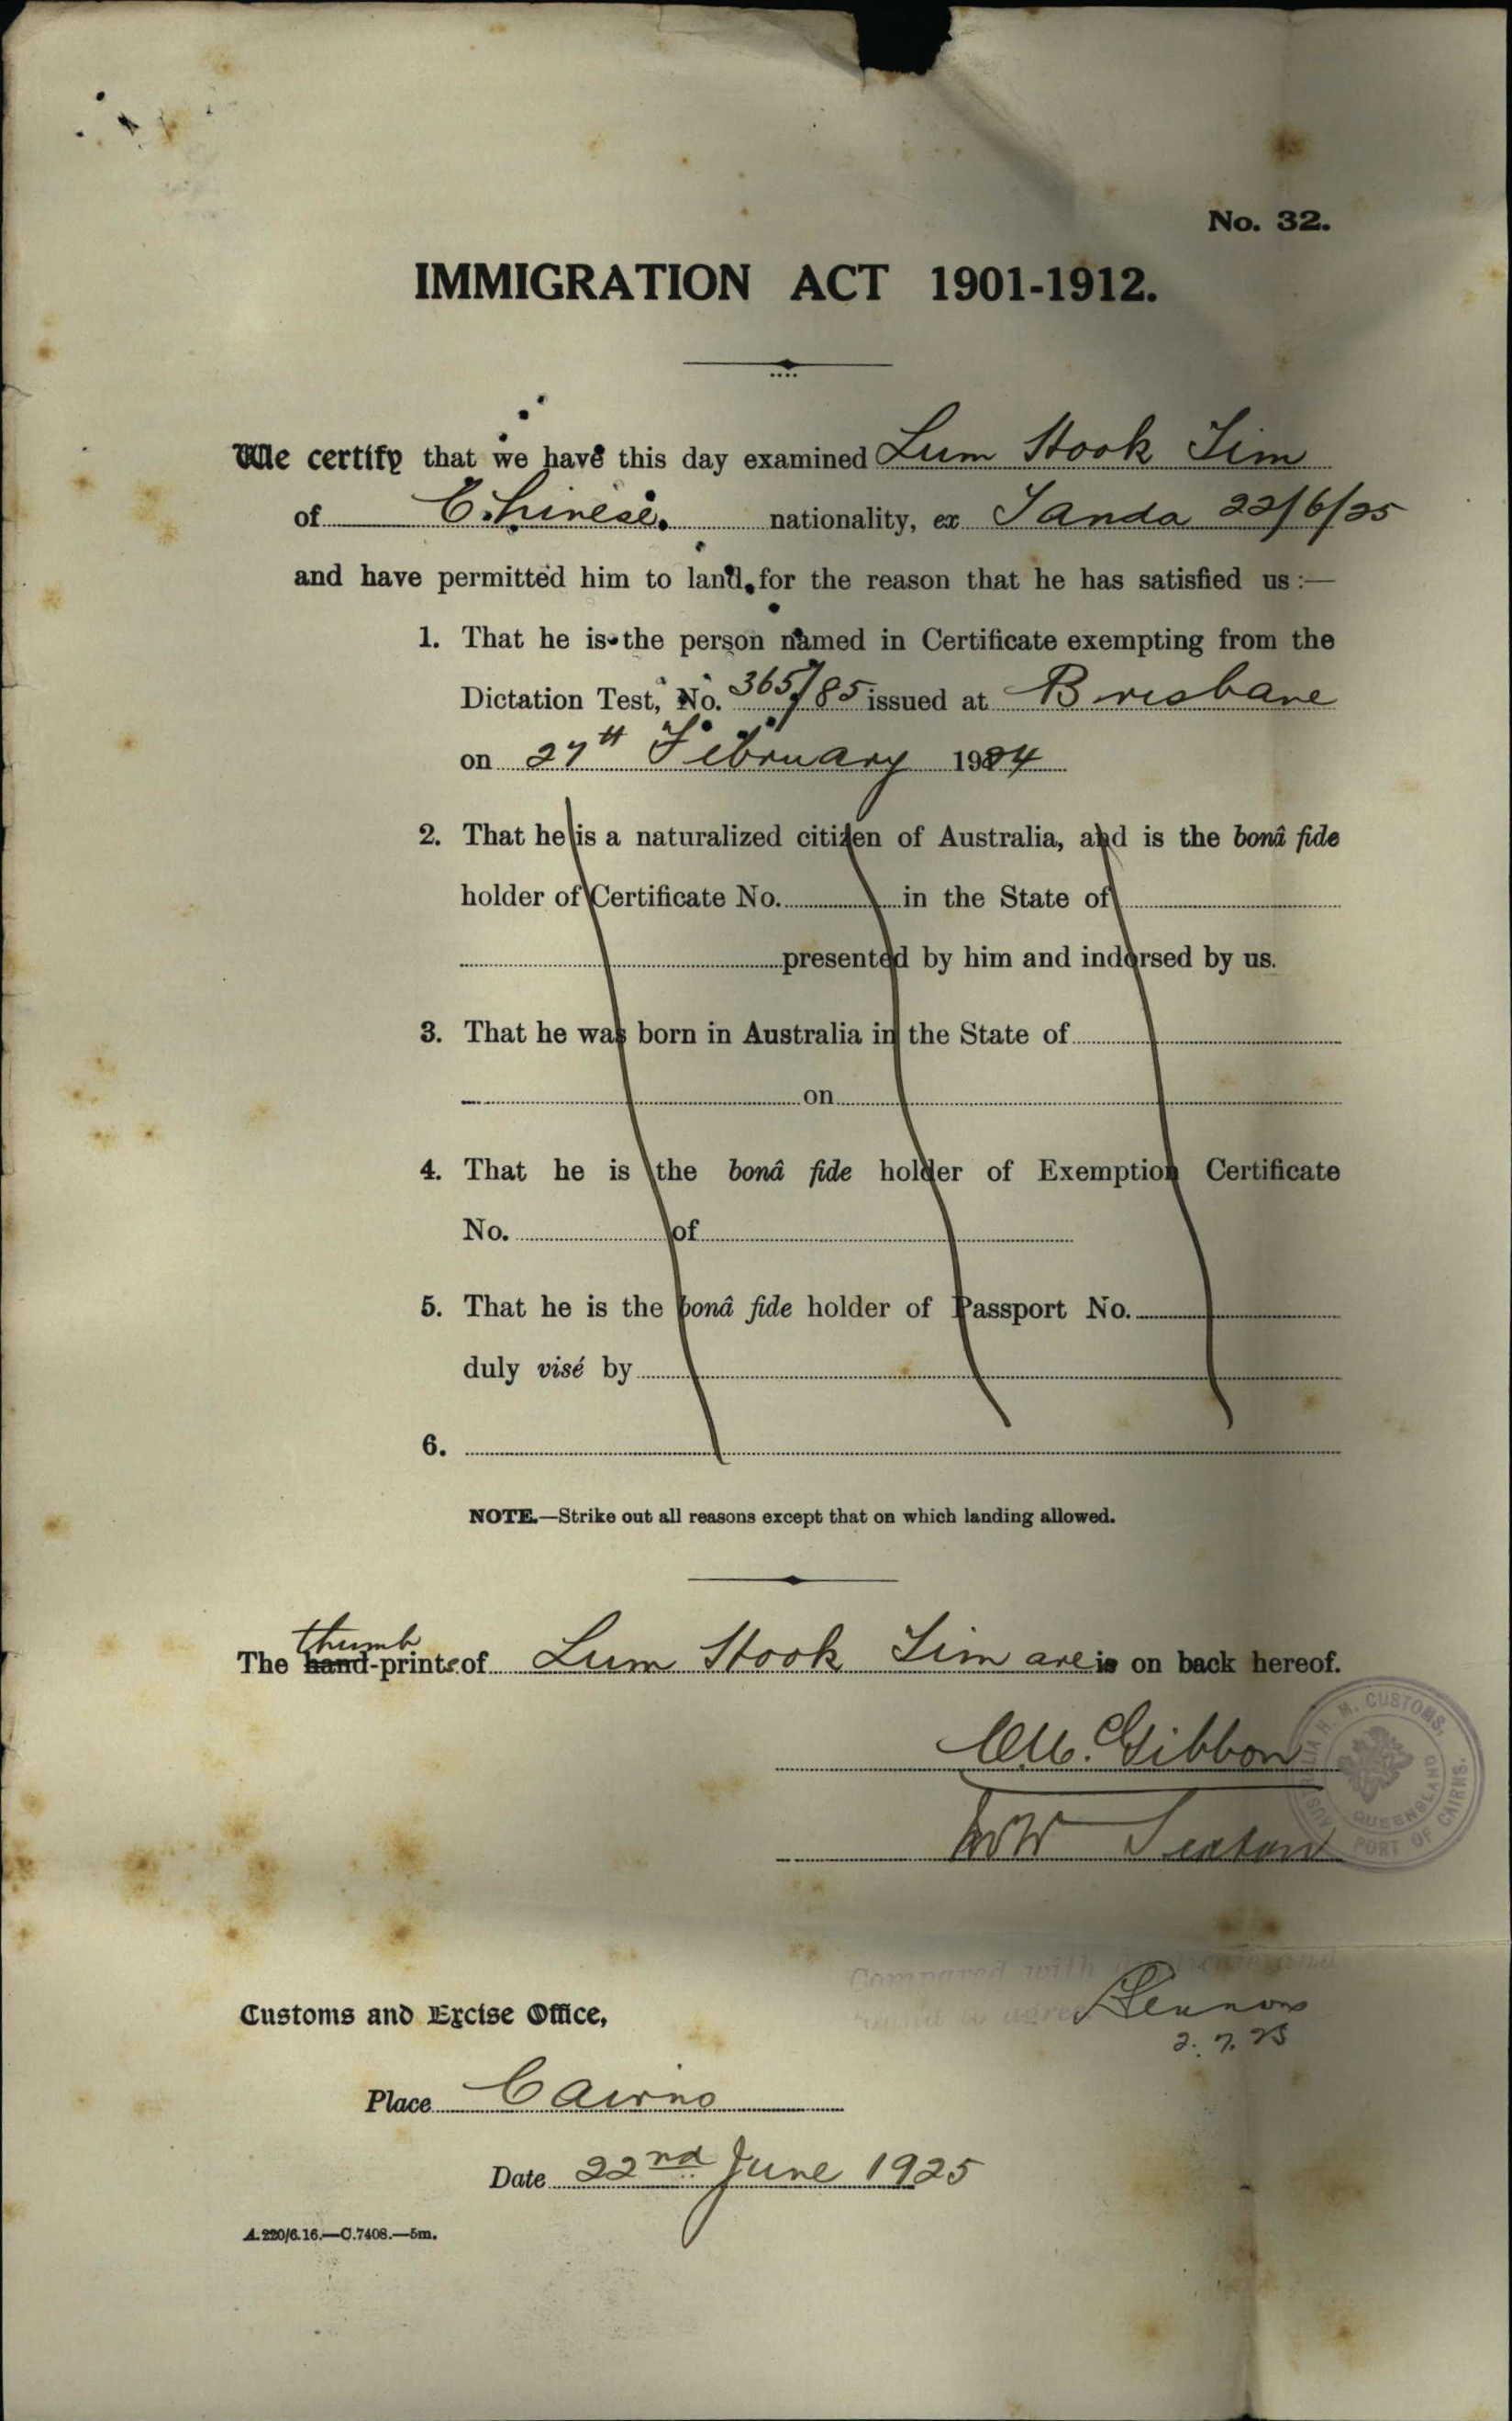 No. 32.
IMMIGRATION ACT 1901-1912.
We certify that we have this day examined Lum Hook Sim
of Chinese. nationality, ex Tanda 22/6/25
and have permitted him to land, for the reason that he has satisfied us :—
1. That he is the person named in Certificate exempting from the
Dictation Test, No. 365/85 issued at Brisbane
on 27th February 1924
2. That he is a naturalized citizen of Australia, and is the bonâ fide
holder of Certificate No. in the State of
presented by him and indorsed by us.
3. That he was born in Australia in the State of
on
4. That he is the bonâ fide holder of Exemption Certificate
No. of
5. That he is the bonâ fide holder of Passport No.
duly visé by
6.
NOTE.—Strike out all reasons except that on which landing allowed.
thumb
The hand-prints of Lum Hook Sim are is on back hereof.
Gibbon
AUSTRALIA H. M. CUSTOMS,
QUEENSLAND
PORT OF CAIRNS.
Compared with
found to agree
2.7.25
Customs and Excise Office,
Place Cairns
Date 22nd June 1925
A.220/6.16.—C.7408.—5m.